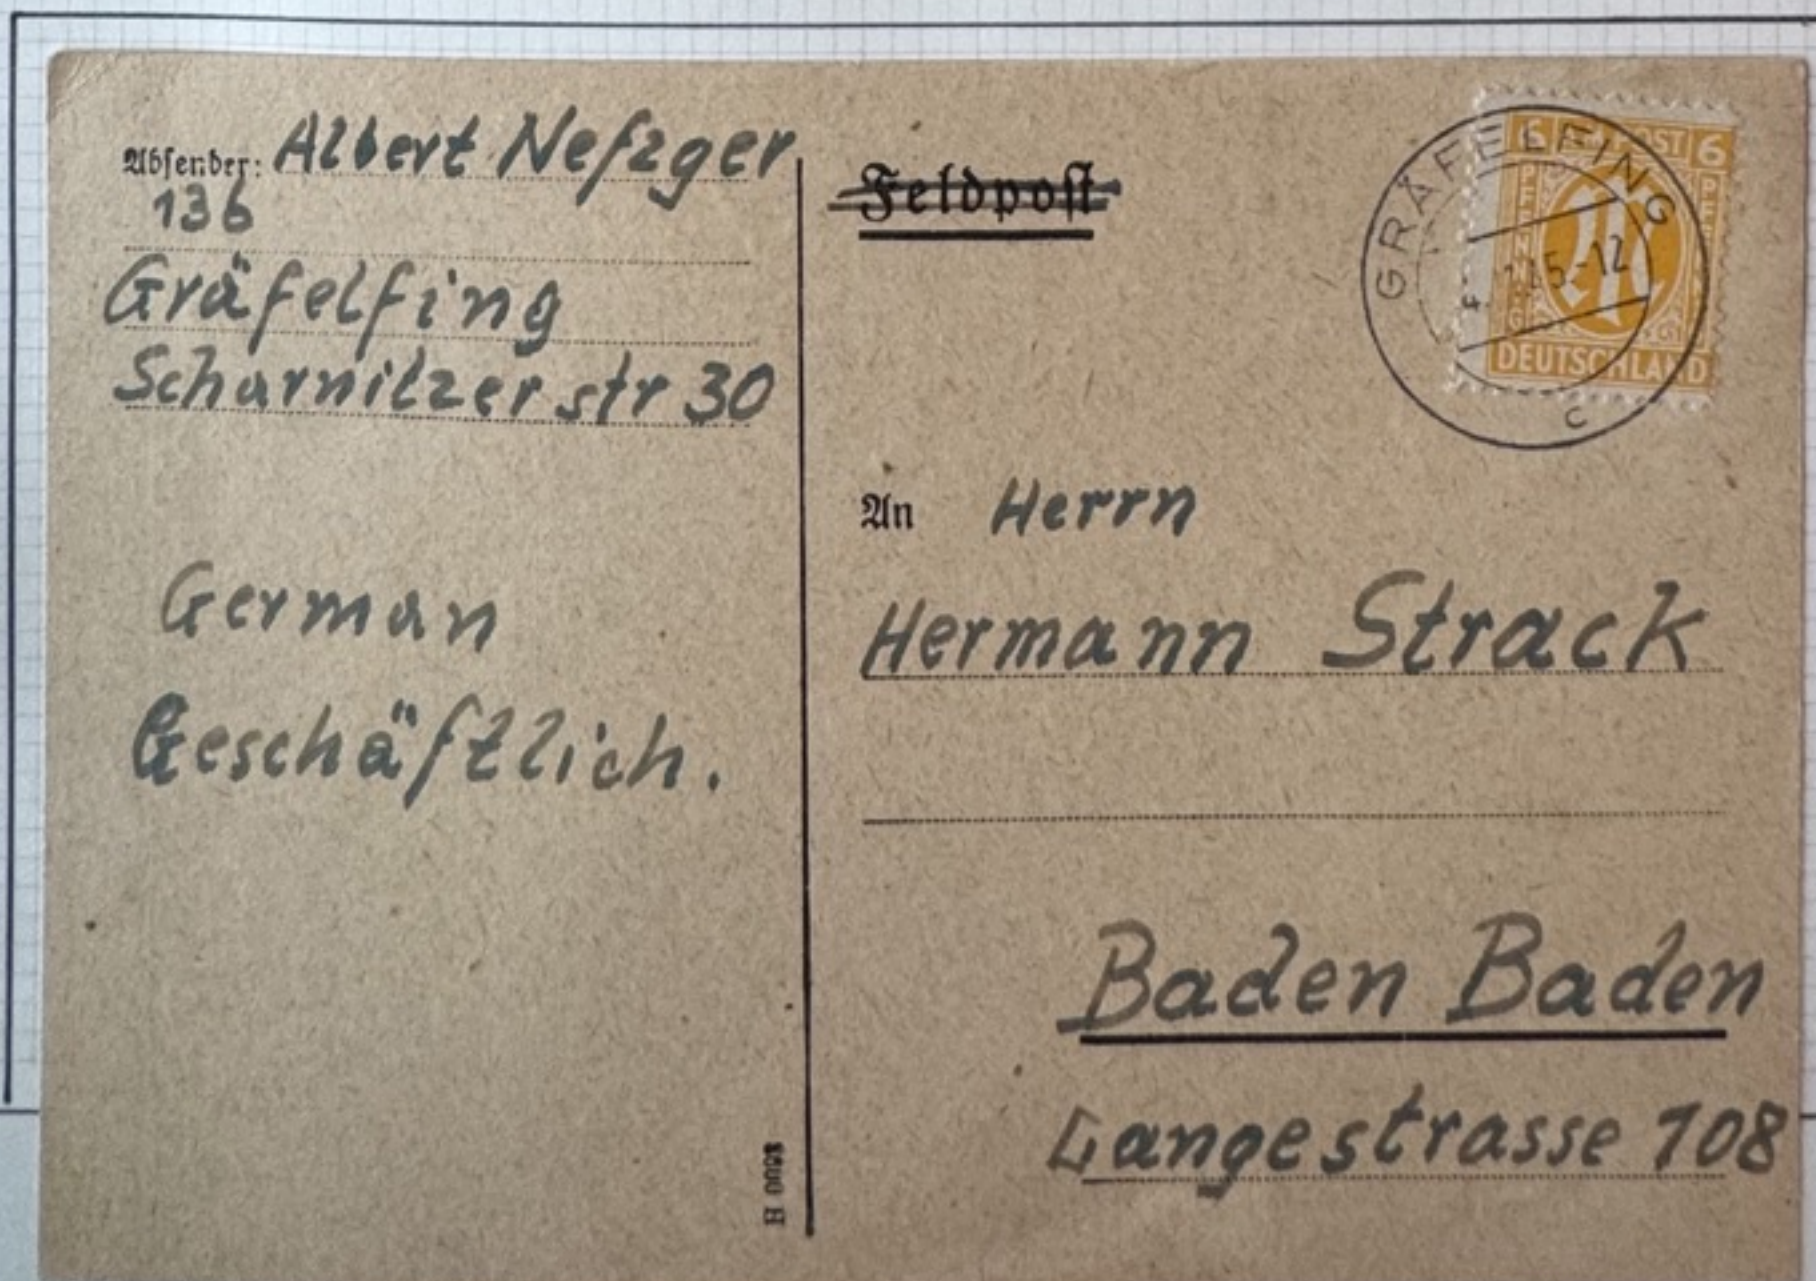 Absender: Albert Nefzger
13b
Gräfelfing
Scharnitzer str 30
German
Geschäftlich.
Feldpost
GRÄFELFING
45-12
c
6 POST 6
PFENNIG
M
DEUTSCHLAND
An Herrn
Hermann Strack
Baden Baden
Langestrasse 108